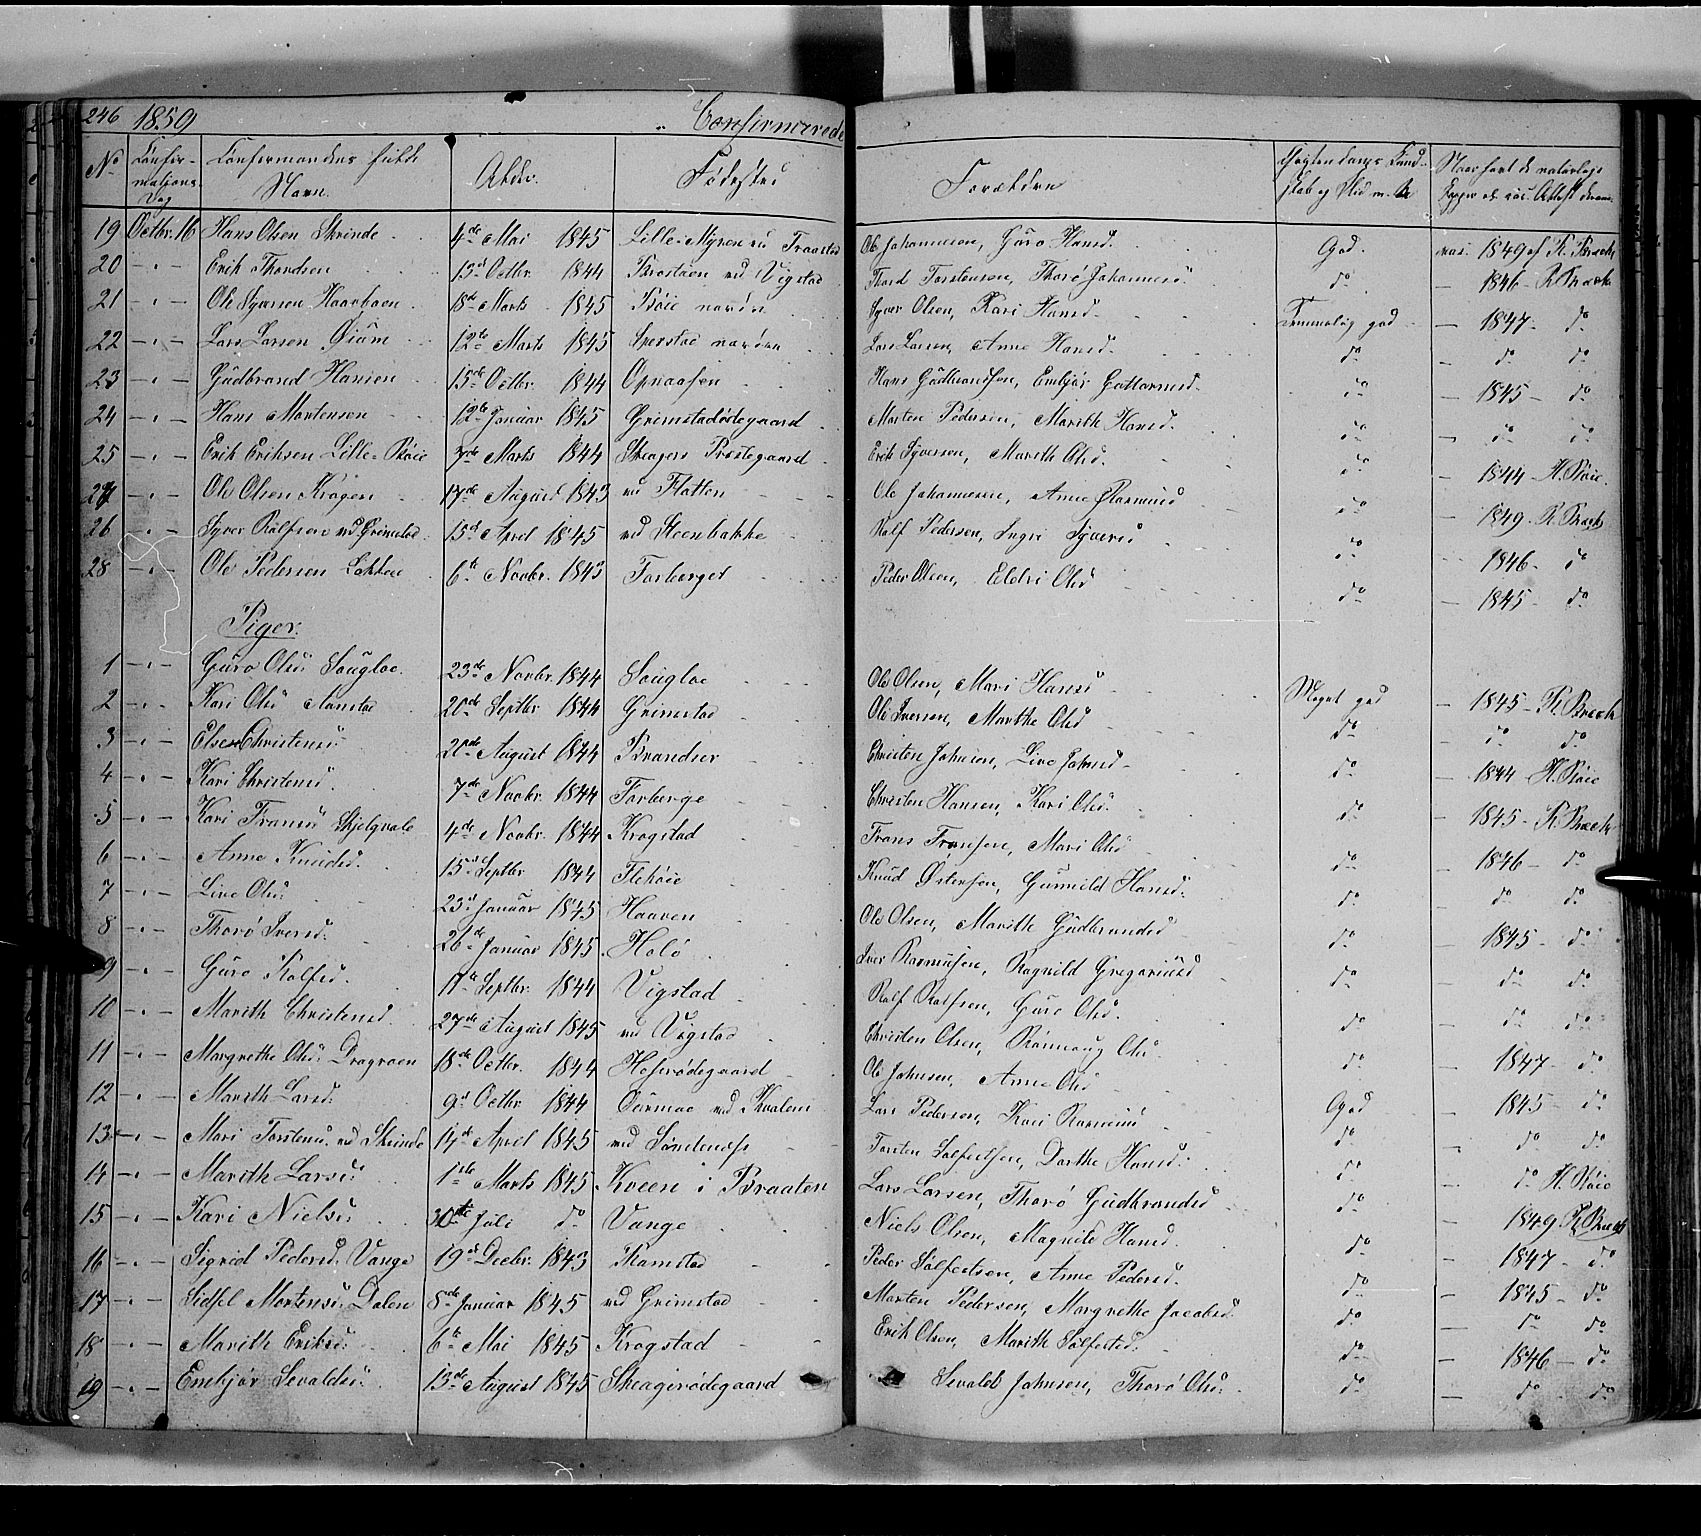 246 1859 Confirmerede
No Confirmations Dag Confirmandens fulde Navn. Alder. Fødested Forældre
19 Octbr. 16 Hans Olsen Skrinde 4de Mai 1845 Lille-Myren ved Traastad Ole Johannesen, Guro Hansd. God. vac. 1849 af R. Bræck
20 -"- Erik Thordsen 13d Octbr. 1844 ved Vigstad Thord Torstensen, Thorø Johannesd. do - 1846 - R. Bræck
21 -"- Ole Syversen 18de Marts 1845 Bøie nordre Syver Olsen, Kari Hansd. Temmelig god - 1847 - do
22 -"- Lars Larsen Øium 12te Marts 1845 Sperstad nordre Lars Larsen, Anne Hansd. do - do do
23 -"- Gudbrand Hansen 15de Octbr. 1844 Opsaasen Hans Gudbrandsen, Embjør Guttormsd. do - 1845 - do
24 -"- Hans Mortensen 12te Januar 1845 Grimstadødegaard Morten Pedersen, Marith Hansd. do - do do
25 -"- Erik Eriksen Lille-Bøie 7de Marts 1844 Skeagers Præstegaard Erik Syversen, Marith Olsd. do - 1844 - H. Bøie.
27 -"- Ole Olsen Kragen 17de August 1843 ved Flatten Ole Johannesen, Anne Rasmusd. do - 1849 - R. Bræck
26 -"- Syver Rolfsen ved Grimstad 15d April 1845 ved Steenbakke Rolf Pedersen, Ingri Syversd. do - 1846 - do
28 -"- Ole Pedersen Løkken 6te Novbr. 1843 Forberget Peder Olsen, Eldri Olsd. do - 1845 - do
Piger.
1 -"- Guro Olsd. Sougloe 23de Novbr. 1844 Sougloe Ole Olsen, Mari Hansd. Meget god - 1845 - R. Bræck
2 -"- Kari Olsd. Aanstad 20de Septbr. 1844 Grimstad Ole Iversen, Marthe Olsd. do - do do
3 -"- Else Christensd. 20de August 1844 Brandser Christen Johnsen, Live Johnsd. do - 1844 H. Bøie
4 -"- Kari Christensd. 7de Novbr. 1844 Forberge Christen Hansen, Kari Olsd. do - 1845 - R. Bræck
5 -"- Kari Fransd. Skjelqvale 4de Novbr. 1844 Krogstad Frans Fransen, Mari Olsd. do - 1846 - do
6 -"- Anne Knudsd. 15d Septbr. 1844 Flekøie Knud Østensen, Gunnild Hansd. do - do do
7 -"- Live Olsd. 23d Januar 1845 Haaven Ole Olsen, Marith Gudbrandsd. do - 1845 - do
8 -"- Thorø Iversd. 26de Januar 1845 Holø Iver Rasmusen, Ragnild Gregoriusd. do - do do
9 -"- Guro Rolfsd. 11te Septbr. 1844 Vigstad Rolf Rolfsen, Guro Olsd. do - do do
10 -"- Marith Christensd. 27de August 1845 ved Vigstad Christen Olsen, Rønnaug Olsd. do - 1847 - do
11 -"- Margrethe Olsd. Dragroen 18de Octbr. 1844 Hofsødegaard Ole Johnsen, Anne Olsd. God - 1845 - do
12 -"- Marith Larsd. 9d Octbr. 1844 ved Kvalem Lars Pedersen, Kari Rasmusd. do - do do
13 -"- Mari Torstensd. ved Skrinde 14de April 1845 ved Søndenaf Torsten Solfestsen, Dorthe Hansd. do - do H. Bøie
14 -"- Marith Larsd. 1ste Marts 1845 Kveen i Braaten Lars Larsen, Thorø Gudbrandsd. do - 1849 R. Bræck
15 -"- Kari Nielsd. 30te Juli do Vange Niels Olsen, Magnild Hansd. do - 1847 - do
16 -"- Sigrid Pedersd. Vange 19d Decbr. 1843 Kamstad Peder Solfestsen, Anne Pedersd. do - 1845 - do
17 -"- Sidsel Mortensd. Dalen 8de Januar 1845 ved Grimstad Morten Pedersen, Margrethe Jacobsd. do - do do
18 -"- Marith Eriksd. 6te Mai 1845 Krogstad Erik Olsen, Marith Solfestsd. do - 1846 - do
19 -"- Embjør Sevaldsd. 13de August 1845 Skeagerødegaard Sevald Johnsen, Thorø Olsd. do - do do